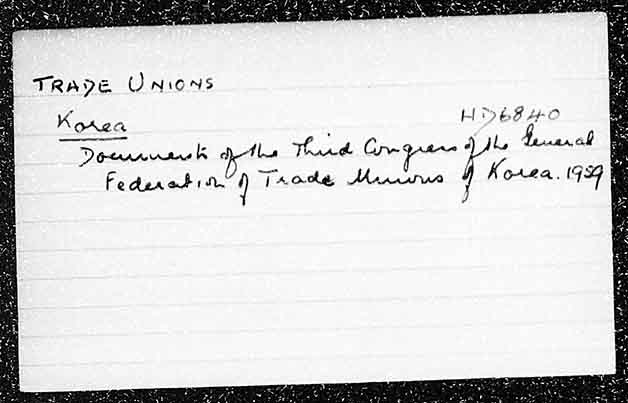 TRADE UNIONS
Korea
HD6840
Documents of the Third Congress of the General
Federation of Trade Unions of Korea. 1959